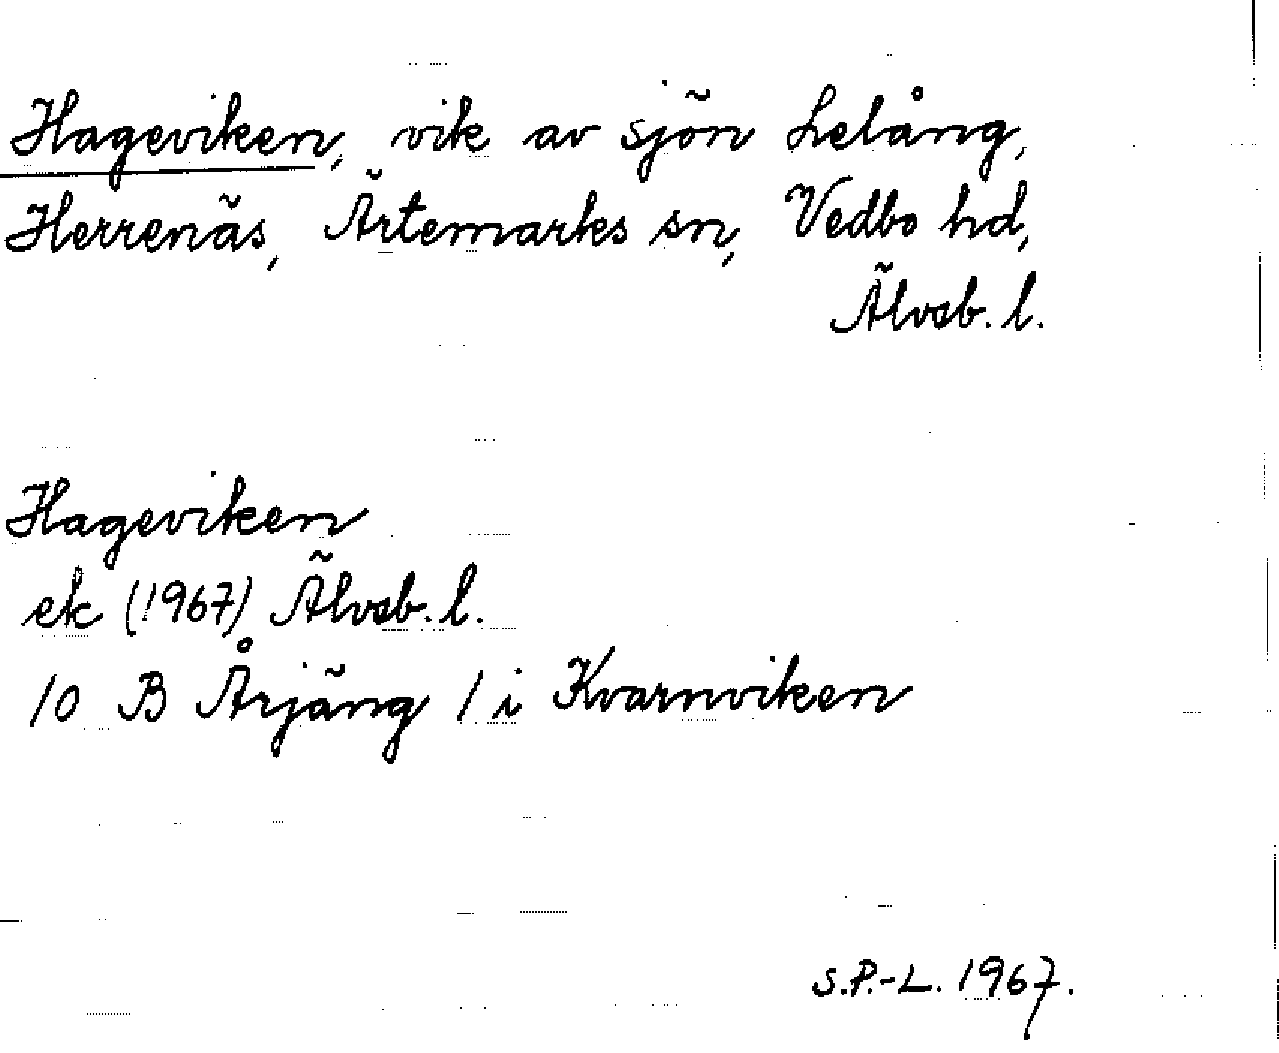 Hageviken, vik av sjön Lelång,
Herrenäs, Ärtemarks sn, Vedbo hd,
Älvsb. l.
Hageviken
ek (1967) Älvsb. l.
10 B Årjäng 1 i Kvarnviken
S.P.-L. 1967.